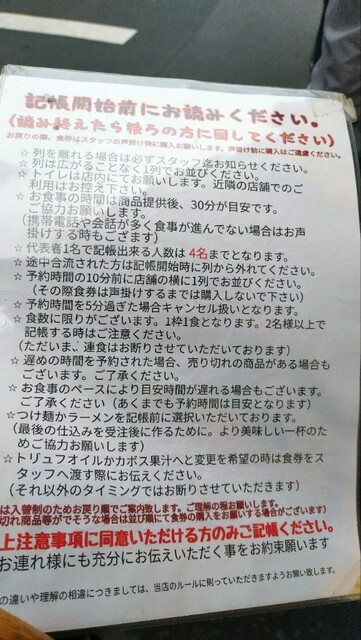 記帳開始前にお読みください。
(読み終えたら後ろの方に回してください)
お戻りの際、食券はスタッフの声掛け後に購入お願いします。声掛け前に購入はご遠慮ください。
☆列を離れる場合は必ずスタッフ迄お知らせください。
☆列は広がることなく1列でお並びください。
☆トイレは店内にてお願いします。近隣の店舗でのご
利用はお控え下さい。
☆お食事の時間は商品提供後、30分が目安です。
ご協力お願いします。
(携帯電話や会話が多く食事が進んでない場合はお声
掛けする時もござます)
☆代表者1名で記帳出来る人数は 4名までとなります。
☆途中合流された方は記帳開始時に列から外れてください。
☆予約時間の10分前に店舗の横に1列でお並びください。
(その際食券は声掛けするまでは購入しないで下さい)
☆予約時間を5分過ぎた場合キャンセル扱いとなります。
☆食数に限りがございます。1枠1食となります。2名様以上で
記帳する時はご注意ください。
(ただいま、連食はお断りさせていただいております)
☆遅めの時間を予約された場合、売り切れの商品がある場合も
ございます。ご了承ください。
☆お食事のペースにより目安時間が遅れる場合もございます。
ご了承ください(あくまでも予約時間は目安となります)
☆つけ麺かラーメンを記帳前に選択いただいております。
(最後の仕込みを受注後に作るために。より美味しい一杯のた
めご協力お願いします)
☆トリュフオイルかカボス果汁へと変更を希望の時は食券をス
タッフへ渡す際にお伝えください。
(それ以外のタイミングではお断りさせていただきます)
は入替制のためお戻り順でご案内致します。ご理解の程お願いします。
切れ商品等がでそうな場合は並び順にて食券の購入をお願いする場合がございます)
上注意事項に同意いただける方のみご記帳ください。
お連れ様にも充分にお伝えいただく事をお約束願います
の違いや理解の相違につきましては、当店のルールに則っていただきますようお願い致します。